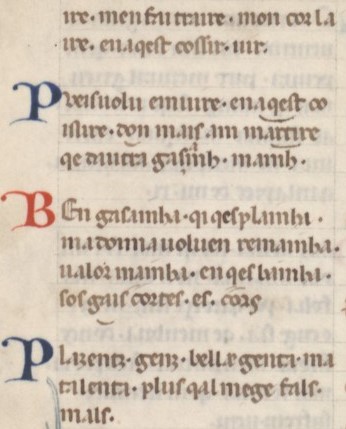 ire. men fai traire. mon cor la
ire. enaqest cossir. uir.
P reisuolu emiure. enaqest co
isiure. don mais. am martire
qe dautra gasinh. manh.
B En gasanha. qi qes planha.
ma donna uoluen remanha.
ualor manha. en qes banha.
sos gais cortes. es. cors
P lazentz. genz. bella genta. ma
talenta. plus qal mege fals.
mals.